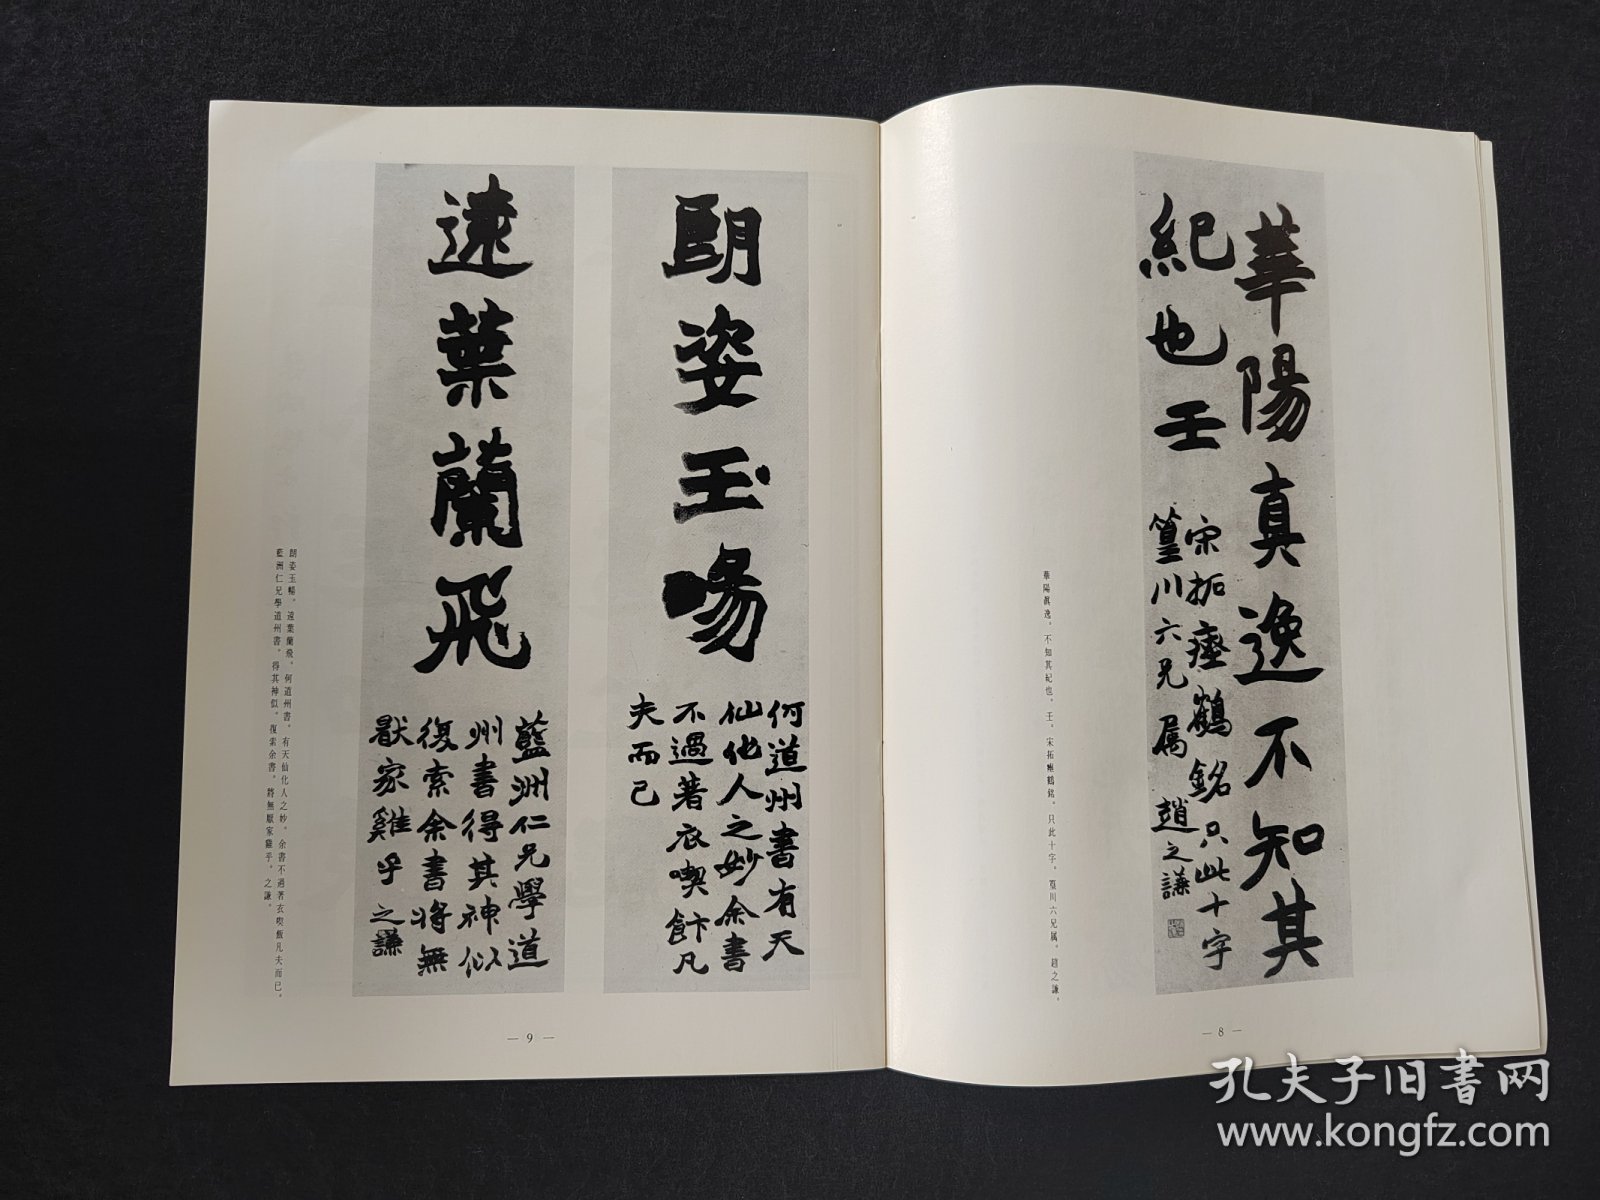 華陽真逸不知其
紀也壬
宋拓瘞鶴銘只此十字
篁川六兄属 趙之謙
華陽眞逸。不知其紀也。壬。宋拓瘞鶴銘。只此十字。篁川六兄属。趙之謙。
— 8 —
朗姿玉暢
何道州書有天
仙化人之妙余書
不過著衣喫飰凡
夫而已
遠葉蘭飛
藍洲仁兄學道
州書得其神似
復索余書將無
猒家雞乎之謙
朗姿玉暢。遠葉蘭飛。何道州書。有天仙化人之妙。余書不過著衣喫飯凡夫而已。
藍洲仁兄學道州書。得其神似。復索余書。將無厭家雞乎。之謙。
— 9 —
孔夫子旧书网
www.kongfz.com